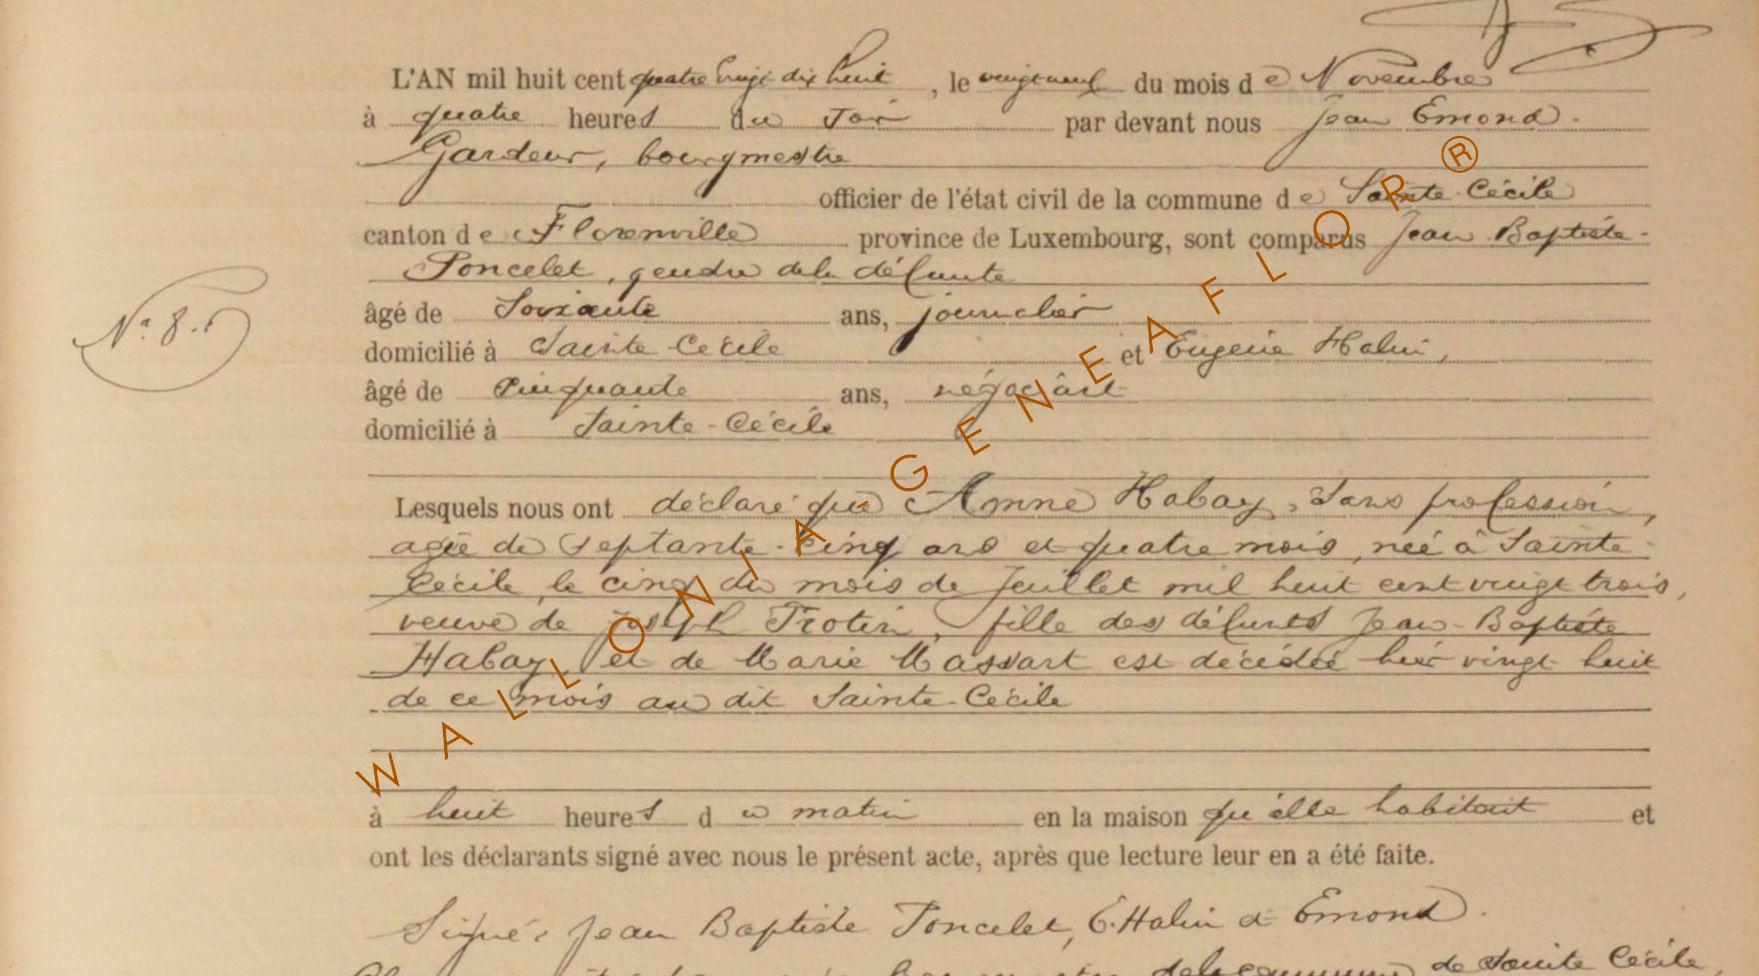 L'AN mil huit cent quatre vingt dix huit, le vingt neuf du mois de Novembre
à quatre heures du soir par devant nous Jean Emond.
Gardeur, bourgmestre
officier de l'état civil de la commune de Sainte Cécile
canton de Florenville province de Luxembourg, sont comparus Jean Baptiste
Poncelet, gendre de la défunte
âgé de Soixante ans, journalier
domicilié à Sainte Cécile et Eugène Halin,
N° 8.
âgé de Cinquante ans, négociant
domicilié à Sainte-Cécile
Lesquels nous ont déclaré que Anne Habay, sans profession,
agée de septante-cinq ans et quatre mois, née à Sainte
Cécile, le cinq du mois de Juillet mil huit cent vingt trois,
veuve de Joseph Trotin, fille des défunts Jean-Baptiste
Habay, et de Marie Massart est décédée hier vingt huit
de ce mois au dit Sainte-Cécile
à huit heures du matin en la maison qu'elle habitait et
ont les déclarants signé avec nous le présent acte, après que lecture leur en a été faite.
Signé: Jean Baptiste Poncelet, E. Halin et Emond.
de la commune de Sainte Cécile
WALLONIA-GENEAFLOR®